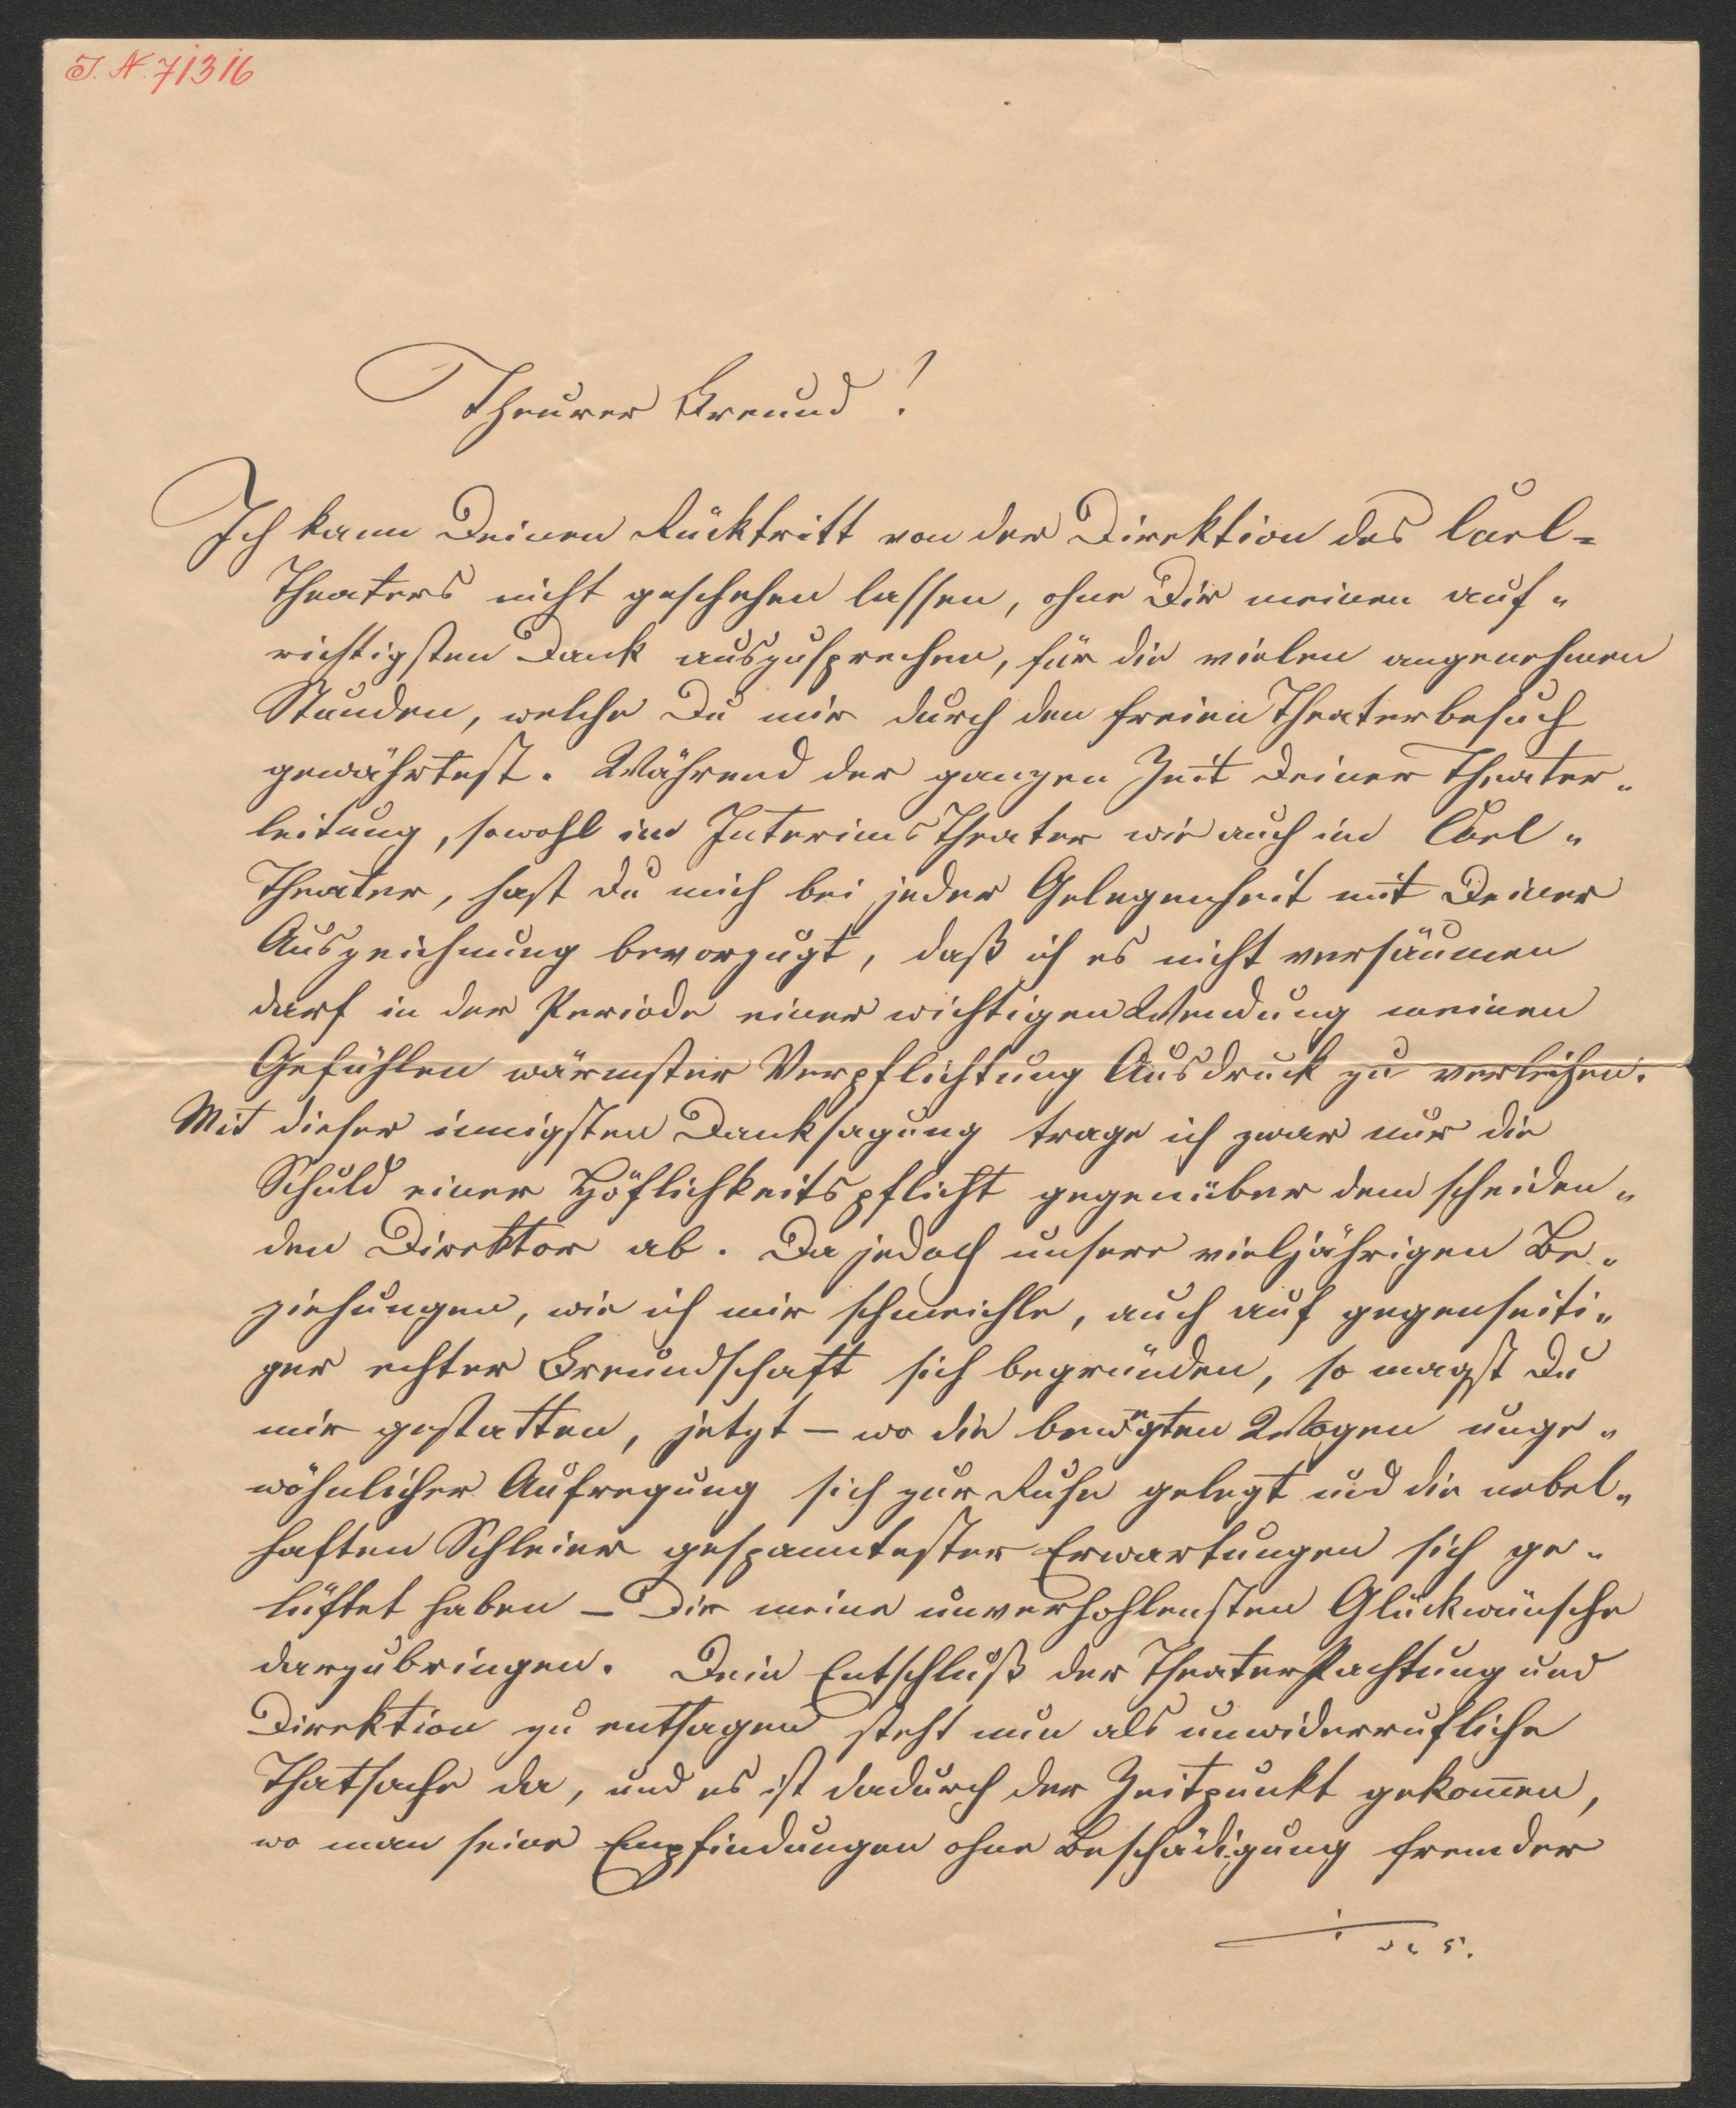 I. N. 71316
Theurer Freund!
Ich kann Deinen Rücktritt von der Direktion des Carl=
Theaters nicht geschehen lassen, ohne Dir meinen auf„
richtigsten Dank auszusprechen, für die vielen angenehmen
Stunden, welche Du mir durch den freien Theaterbesuch
gewährtest. Während der ganzen Zeit Deiner Theater„
leitung, sowohl im Interims Theater wie auch im Carl„
Theater, hast Du mich bei jeder Gelegenheit mit Deiner
Auszeichnung bevorzugt, daß ich es nicht versäumen
darf in der Periode einer wichtigen Wendung meinen
Gefühlen wärmster Verpflichtung Ausdruck zu verleihen.
Mit dieser innigsten Danksagung trage ich zwar nur die
Schuld einer Höflichkeitspflicht gegenüber dem scheiden„
den Direktor ab. Da jedoch unsere vieljährigen Be„
ziehungen, wie ich mir schmeichle, auch auf gegenseiti„
ger echter Freundschaft sich begründen, so magst Du
mir gestatten, jetzt – wo die bewegten Wogen unge„
wöhnlicher Aufregung sich zur Ruhe gelegt und die nebel„
haften Schleier gespanntester Erwartungen sich ge„
lüftet haben – Dir meine unverhohlensten Glückwünsche
darzubringen. Dein Entschluß der Theater Pachtung und
Direktion zu entsagen steht nun als unwiderrufliche
Thatsache da, und es ist dadurch der Zeitpunkt gekom̄en,
wo man seine Empfindungen ohne Beschädigung fremder